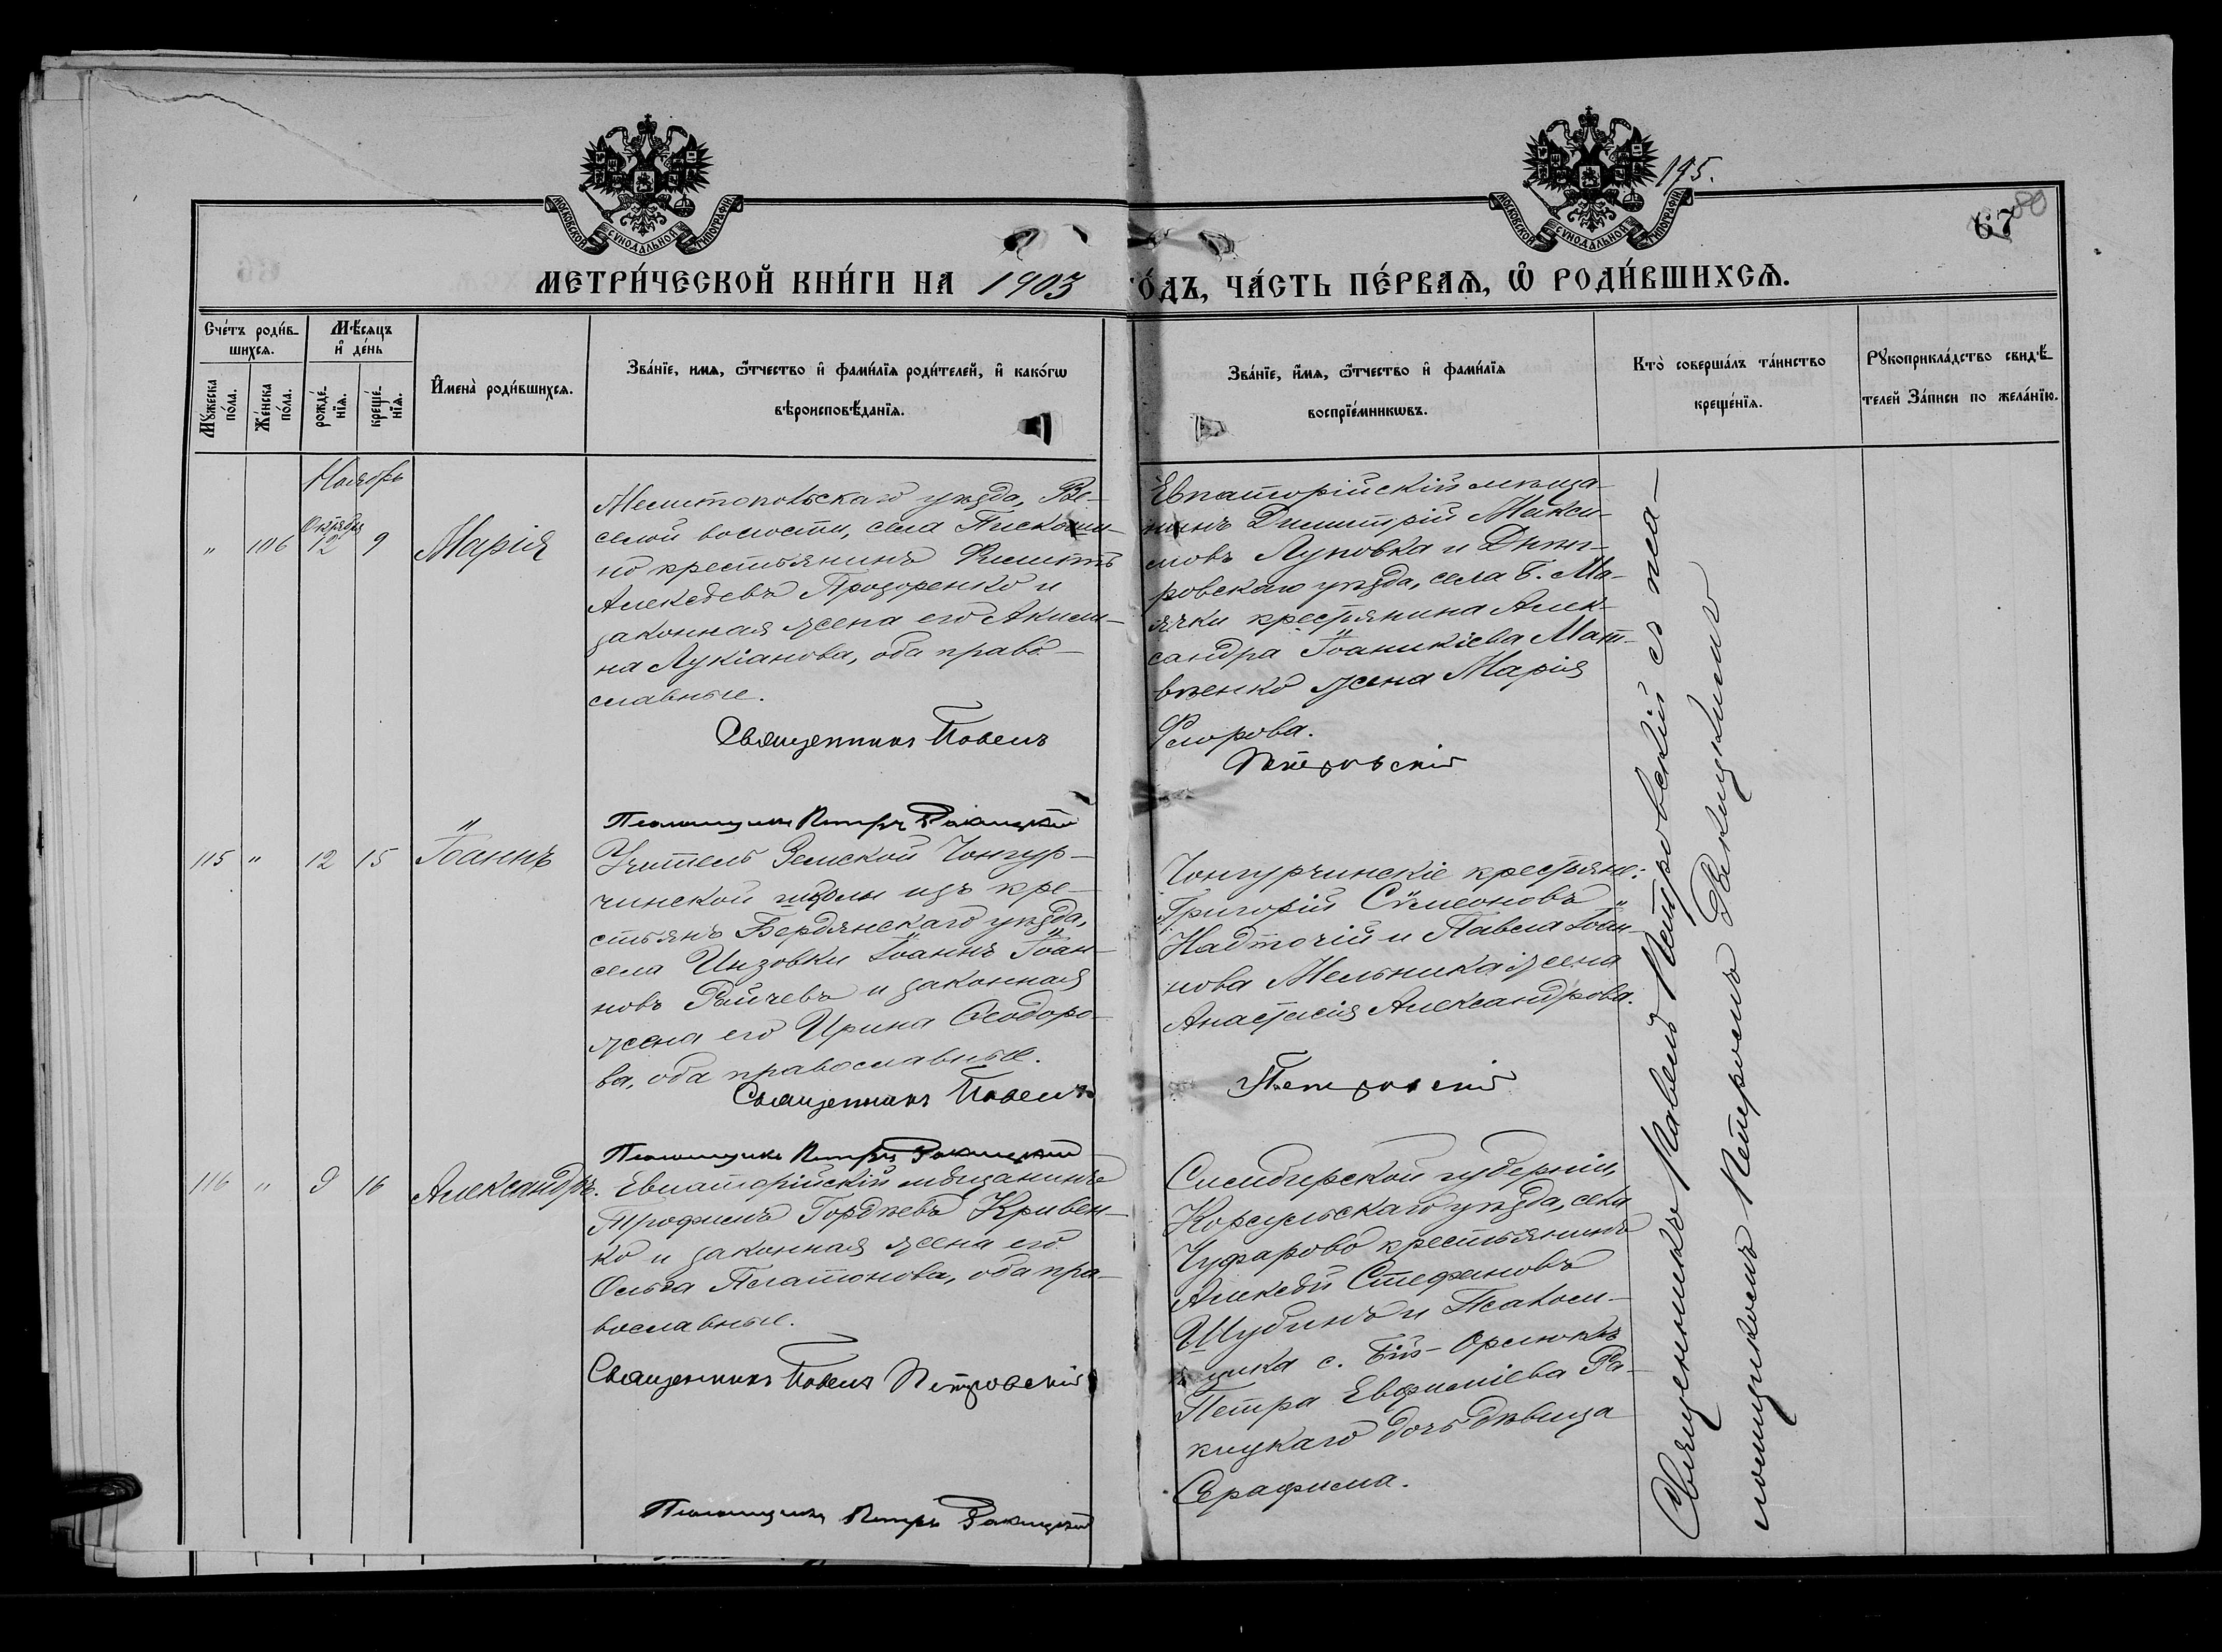 МОСКОВСКОЙ СѴНОДАЛЬНОЙ ТИПОГРАФІИ
МОСКОВСКОЙ СѴНОДАЛЬНОЙ ТИПОГРАФІИ
195.
67 80
МЕТРИ́ЧЕСКОЙ КНИ́ГИ НА 1903 ГО́ДЪ, ЧА́СТЬ ПЕ́РВАѦ, Ѡ҆ РОДИ́ВШИХСѦ.
Сче́тъ роди́в-
шихсѧ.
Мꙋ́жеска по́ла.
Же́нска по́ла.
Мѣ́сѧцъ
и҆ де́нь
рожде́-
нїѧ.
креще́-
нїѧ.
И҆мена̀ роди́вшихсѧ.
Зва́нїе, имѧ, ѻ҆́тчество и҆ фами́лїѧ роди́телей, и҆ како́гѡ
вѣроисповѣ́данїѧ.
Зва́нїе, и҆́мѧ, ѻ҆́тчество и҆ фами́лїѧ
воспрїе́мникѡвъ.
Кто̀ соверша́лъ та́инство
креще́нїѧ.
Рꙋкоприкла́дство свидѣ́-
телей За́писи по жела́нїю.
Ноябрь
" 106 Октября 12 9 Марія
Мелитопольскаго уѣзда, Ве-
селой волости, села Пискоши-
но крестьянинъ Филиппъ
Алексѣевъ Прозоренко и
законная жена его Акили-
на Лукіанова, оба право-
славные.
Священникъ Павелъ
Псаломщикъ Петръ Ракицкій
Евпаторійскій мѣща-
нинъ Димитрій Макси-
мовъ Луповка и Днѣп-
ровскаго уѣзда, села Б. Ма-
ячки крестьянина Алек-
сандра Іоаникіева Мат-
вѣенко жена Марія
Флорова.
Петровскій
115 " 12 15 Іоаннъ
Учитель Земской Чонгур-
чинской школы изъ кре-
стьянъ Бердянскаго уѣзда,
села Инзовки Іоаннъ Іоан-
новъ Райчевъ и законная
жена его Ирина Ѳеодоро-
ва, оба православные.
Священникъ Павелъ
Псаломщикъ Петръ Ракицкій
Чонгурчинскіе крестьяне:
Григорій Сѵмеоновъ
Надточій и Павела Іоан-
нова Мельника жена
Анастасія Александрова.
Петровскій
116 " 9 16 Александръ.
Евпаторійскій мѣщанинъ
Трофимъ Гордѣевъ Кривен-
ко и законная жена его
Ольга Платонова, оба пра-
вославные.
Священникъ Павелъ Петровскій
Псаломщикъ Петръ Ракицкій
Симбирской губерніи,
Корсунскаго уѣзда, села
Чуфарово крестьянинъ
Алексѣй Стефановъ
Шубинъ и Псалом-
щика с. Бій-Орлюкъ
Петра Евфиміева Ра-
кицкаго дочь дѣвица
Серафима.
Священникъ Павелъ Петровскій съ пса-
ломщикомъ Петромъ Ракицкимъ